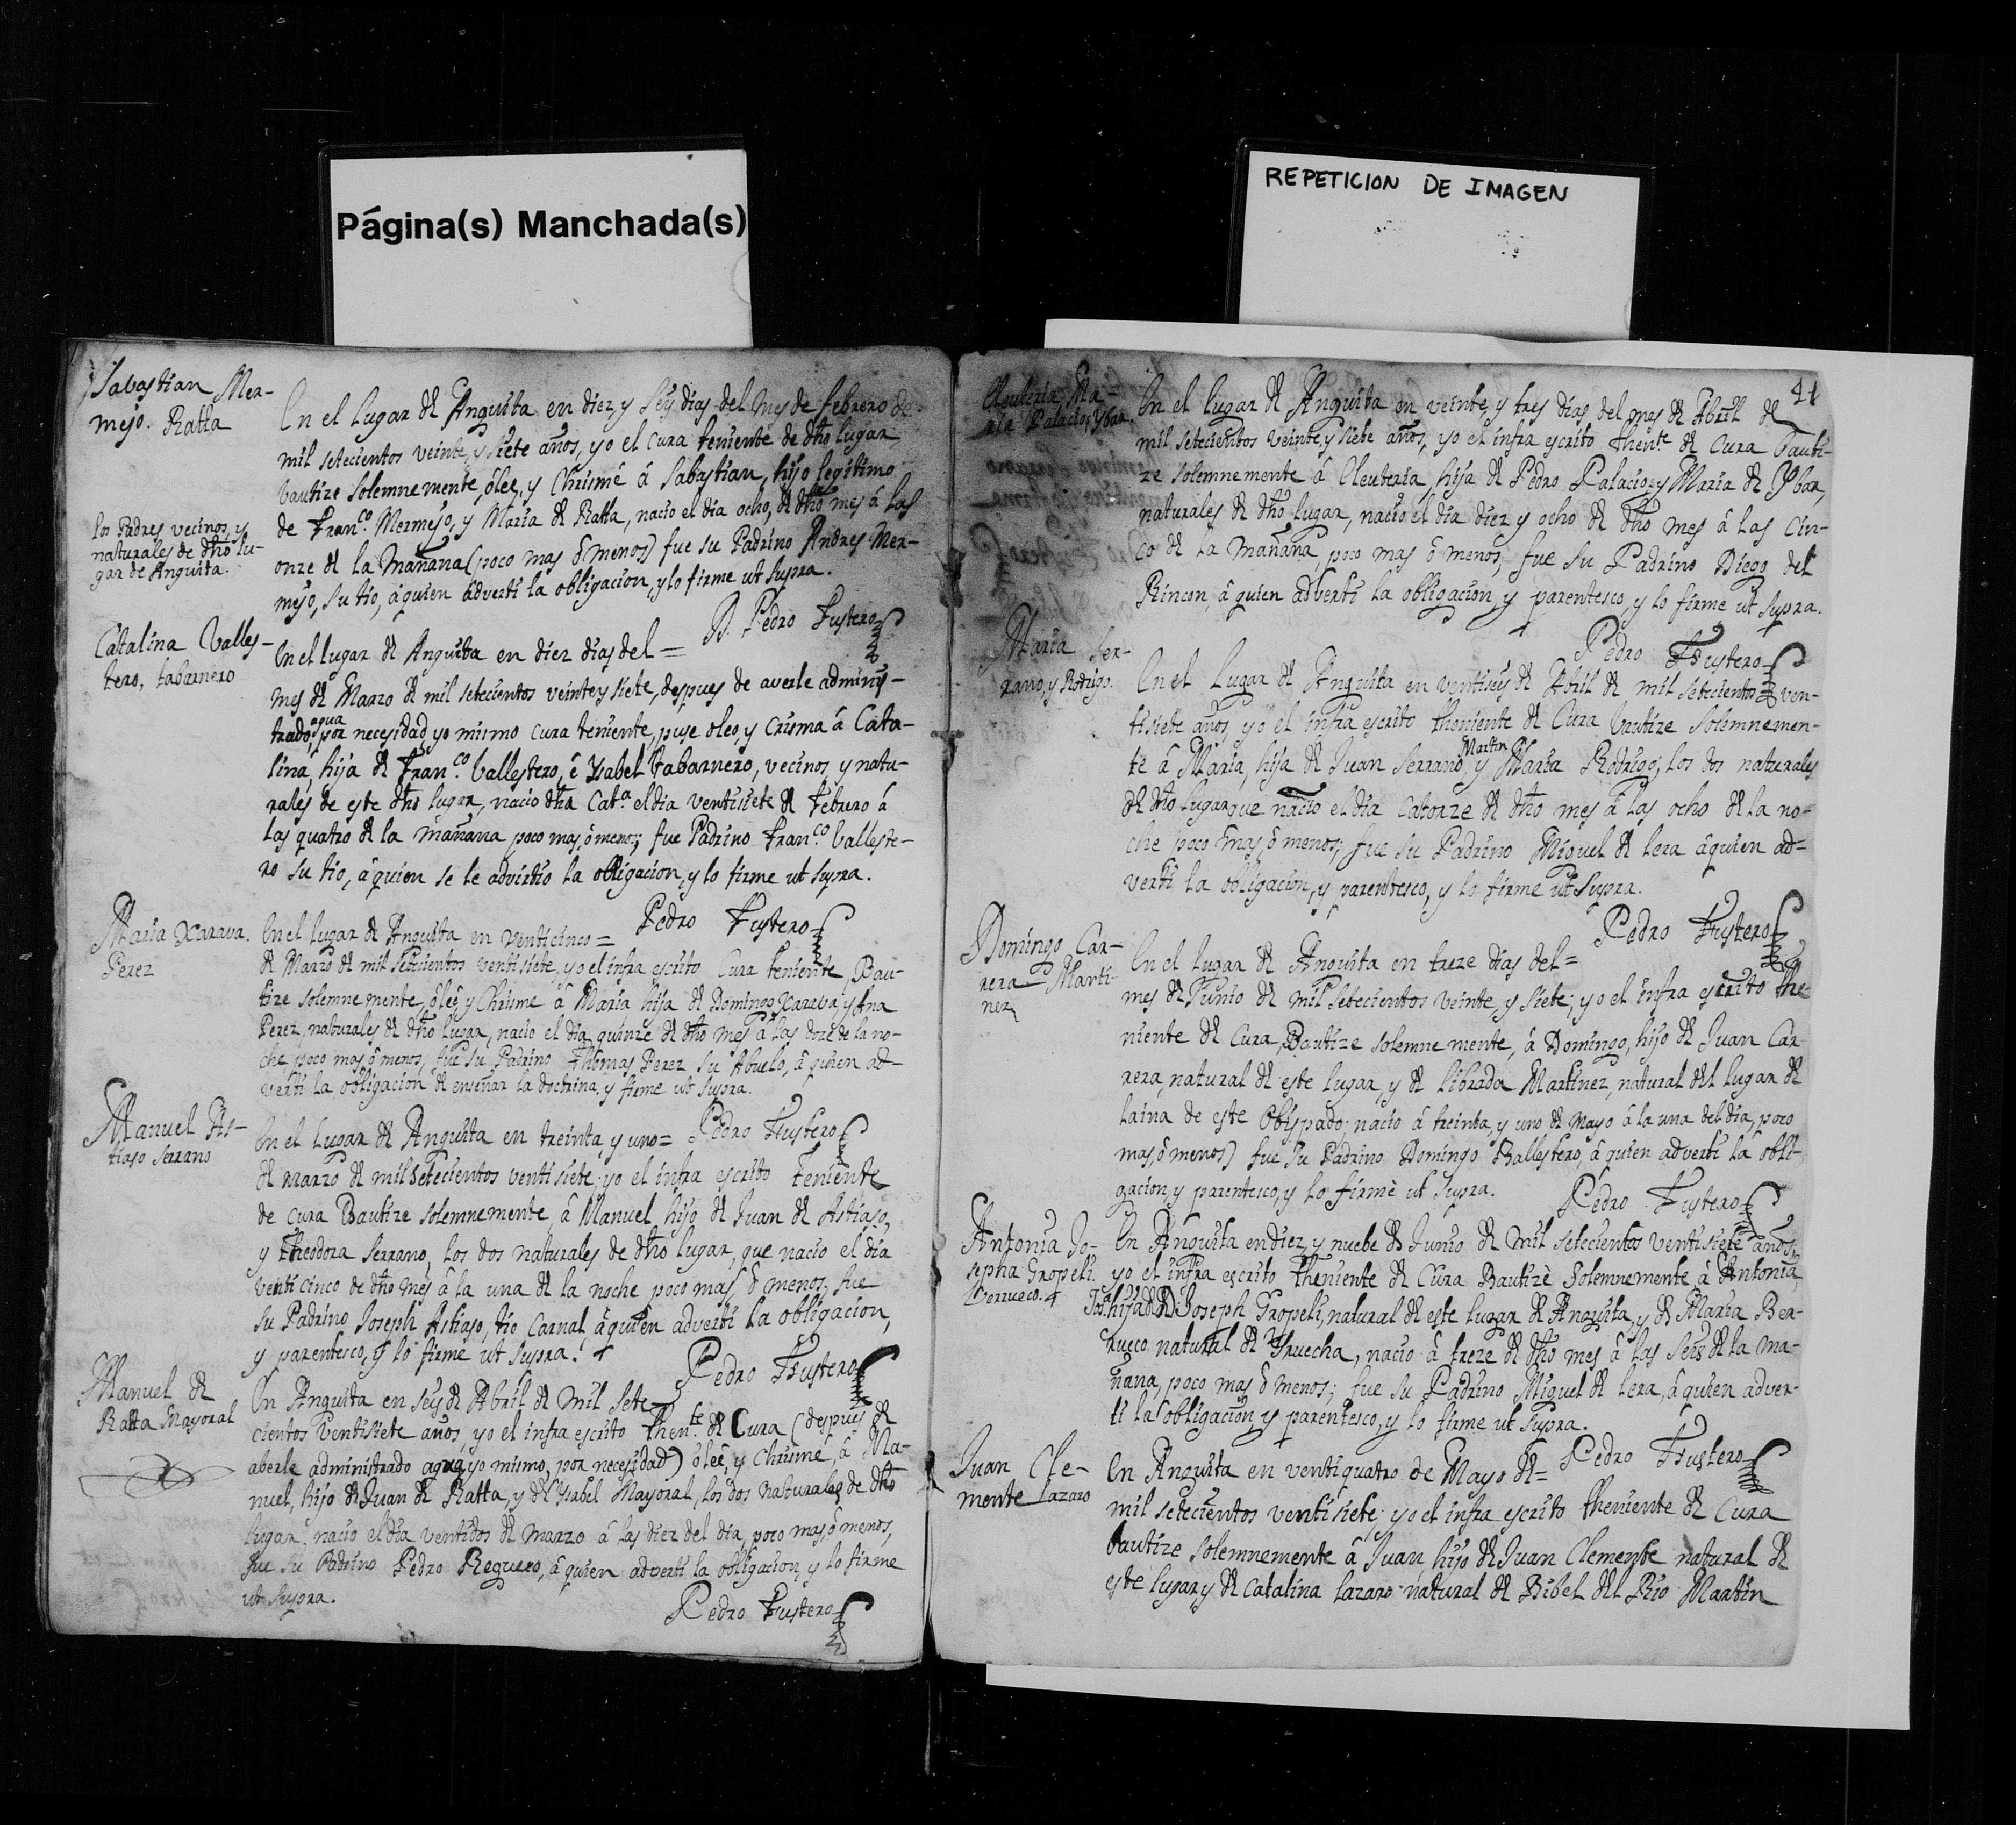 Página(s) Manchada(s)
REPETICION DE IMAGEN
Sabastian Mer-
mejo. Ratta
En el Lugar de Anguita en diez, y seis dias del Mes de febrero de
mil setecientos veinte, y siete años, yo el Cura teniente de dho lugar
bautize solemnemente, ólee, y Chrismé á Sabastian, hijo legitimo
de Franco. Mermejo, y Maria de Ratta, nacio el dia ocho, de dho mes á las
onze de la Mañana (poco mas ó menos) fue su Padrino Andres Mer-
mejo, su tio, áquien adverti la obligacion, y lo firme ut supra.
los Padres vecinos, y
naturales de dho lu-
gar de Anguita.
D. Pedro Fustero
Catalina Valles-
tero, tabarnero
En el lugar de Anguita en diez dias del =
mes de Marzo de mil setecientos veinte y siete, despues de averle adminis-
trado, agua por necesidad, yo mismo cura teniente, puse oleo, y crisma á Cata-
lina, hija de Franco. Vallestero, é Ysabel tabarnero, vecinos, y natu-
rales de este dho lugar, nacio dha Cata. el dia ventisiete de Febrero á
las quatro de la mañana poco mas, ó menos; fue Padrino Franco. Valleste-
ro su tio, áquien se le advirtio la obligacion, y lo firme ut supra.
Pedro Fustero
Maria Xarava.
Perez
En el lugar de Anguita en venticinco =
de Marzo de mil setecientos ventisiete, yo el infra escrito Cura teniente Bau-
tize solemnemente, óleé, y Chrisme á Maria hija de Domingo Xarava, y Ana
Perez, naturales de dho lugar, nacio el dia quinze de dho mes á las doze de la no-
che poco mas, ó menos, fue su Padrino Thomas Perez su Abuelo, á quien ad-
verti la obligacion de enseñar la doctrina, y firme ut supra.
Manuel As-
tiaso Serrano
En el Lugar de Anguita en treinta, y uno = Pedro Fustero
de Marzo de mil setecientos ventisiete; yo el infra escrito Teniente
de Cura Bautize solemnemente á Manuel hijo de Juan de Astiaso,
y Theodora Serrano, los dos naturales de dho lugar, que nacio el dia
venti cinco de dho mes á la una de la noche poco mas, ó menos, fue
su Padrino Joseph Astiaso, tio Carnal áquien adverti la obligacion,
y parentesco, y lo firme ut supra.
Pedro Fustero
Manuel de
Ratta Mayoral
En Anguita en seis de Abril de Mil Sete=
cientos ventisiete años, yo el infra escrito thente. de Cura (despues de
aberle administrado agua, yo mismo, por necesidad) óleé, y Chrismé, á Ma-
nuel, hijo de Juan de Ratta, y de Ysabel Mayoral, los dos naturales de dho
lugar. nacio el dia ventidos de Marzo á las diez del dia, poco mas, ó menos,
fue su Padrino Pedro Reguero, á quien adverti la obligacion, y lo firme
ut supra.
Pedro Fustero
41
Eleuteria Ma-
ria Palacio, Ybar.
En el lugar de Anguita en veinte, y tres dias del mes de Abril de
mil setecientos veinte, y siete años, yo el infra escrito thente. de Cura bauti-
ze solemnemente á Eleuteria, hija de Pedro Palacio, y Maria de Ybar,
naturales de dho lugar, nacio el dia diez y ocho de dho mes á las cin-
co de la Mañana, poco mas ó menos, fue su Padrino Diego del
Rincon, á quien adverti la obligacion y parentesco, y lo firme ut supra.
Pedro Fustero
Maria Ser-
rano, y Rodrigo.
En el Lugar de Anguita en ventiseis de Abril de mil setecientos ven-
tisiete años, yo el infra escrito theniente de Cura bautize solemnemen-
te á Maria, hija de Juan Serrano, y Martin Maria Rodrigo, los dos naturales
de dho lugar que nacio el dia catorze de dho mes á las ocho de la no-
che poco mas, ó menos; fue su Padrino Miguel de lera áquien ad-
verti la obligacion, y parentesco, y lo firme ut supra.
Pedro Fustero
Domingo Car-
rera Marti-
nez
En el lugar de Anguita en treze dias del=
mes de Junio de mil setecientos veinte, y siete; yo el infra escrito the-
niente de Cura, Bautize solemnemente, á Domingo, hijo de Juan Car-
rera, natural de este lugar, y de librada Martinez, natural del lugar de
laina de este Obispado nacio á treinta, y uno de Mayo á la una del dia, poco
mas, ó menos) fue su Padrino Domingo Ballestero, á quien adverti la obli-
gacion, y parentesco, y lo firmè ut supra.
Pedro Fustero
Antonia Jo-
sepha Gropeli.
Berrueco.
En Anguita en diez, y nuebe de Junio de Mil setecientos ventisiete años,
yo el infra escrito Theniente de Cura Bautizè solemnemente á Antonia,
hija de D. Joseph Gropeli, natural de este lugar de Anguita, y de Maria Ber-
rueco natural de Yruecha, nacio á treze de dho mes á las seis de la ma-
ñana, poco mas ó menos; fue su Padrino Miguel de lera, á quien adver-
ti la obligacion, y parentesco, y lo firme ut supra.
Pedro Fustero
Juan Cle-
mente Lazaro
En Anguita en ventiquatro de Mayo de=
mil setecientos ventisiete; yo el infra escrito theniente de Cura
bautize solemnemente á Juan hijo de Juan Clemente natural de
este lugar, y de Catalina Lazaro natural de Bibel del Rio Martin